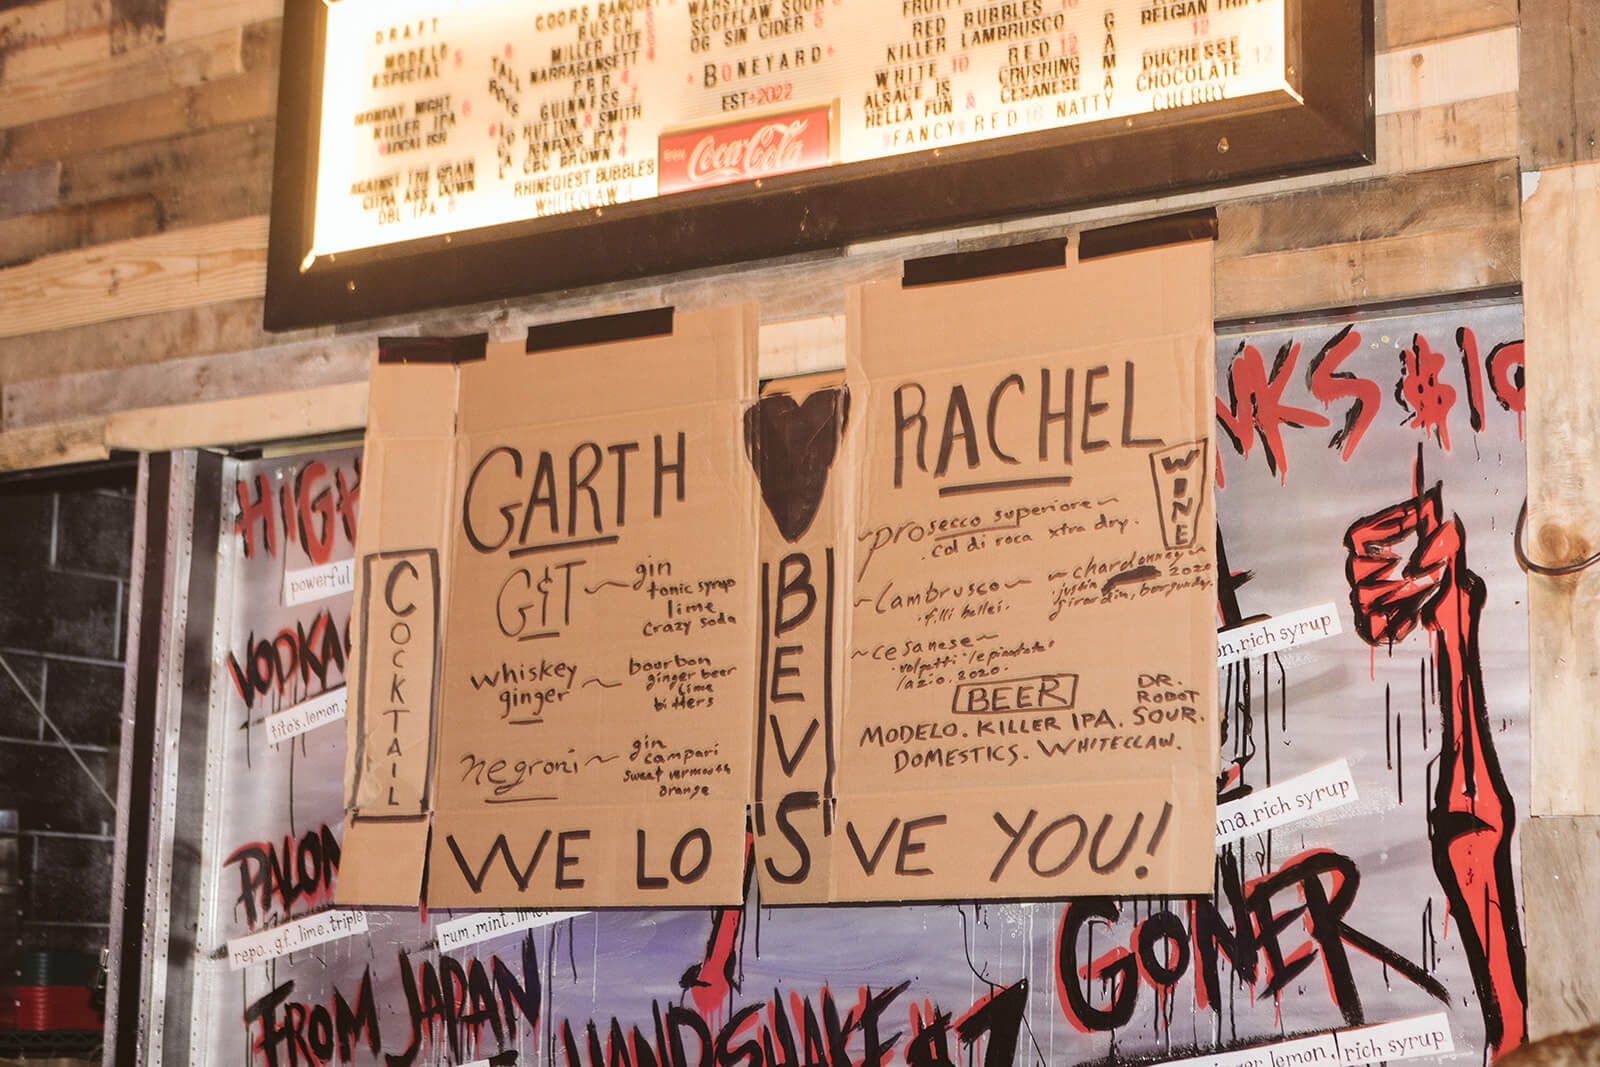 DRAFT
MODELO
ESPECIAL 5
MONDAY NIGHT 6
KILLER IPA
AGAINST THE GRAIN
CITRA ASS DOWN
DBL IPA
TALL
COORS BANQUET
MILLER LITE
NARRAGANSETT
PBR 4
GUINNESS 7
CBC BROWN 4
RHINEGIEST BUBBLES
WHITECLAW 4
SCOFFLAW SOUR 6
OG SIN CIDER 6
BONEYARD
EST 2022
Coca-Cola
FRUITY
RED BUBBLES 10
KILLER LAMBRUSCO
WHITE 10
ALSACE IS
HELLA FUN
RED 12
CRUSHING
CESANESE
GAMMA
FANCY RED 16 NATTY
BELGIAN
13
DUCHESSE
CHOCOLATE 12
CHERRY
GARTH
RACHEL
COCKTAIL
BEVS
WINE
G&T ~ gin
tonic syrup
lime
crazy soda
whiskey
ginger ~ bourbon
ginger beer
lime
bitters
negroni ~ gin
campari
sweet vermouth
orange
~prosecco superiore~
.col di roca xtra dry.
~lambrusco~
.f.lli bellei.
~chardonnay~
.justin 2020
girardin, burgundy.
~cesanese~
lazio. 2020
BEER
MODELO. KILLER IPA. DR. ROBOT SOUR.
DOMESTICS. WHITECLAW.
WE LO VE YOU!
HIGH
powerful
VODKA
tito's, lemon,
PALOM
repo., g.f., lime, triple
rum, mint, lime
FROM JAPAN
HANDSHAKE $7
NKS $10
on, rich syrup
ana, rich syrup
GONER
ginger, lemon, rich syrup